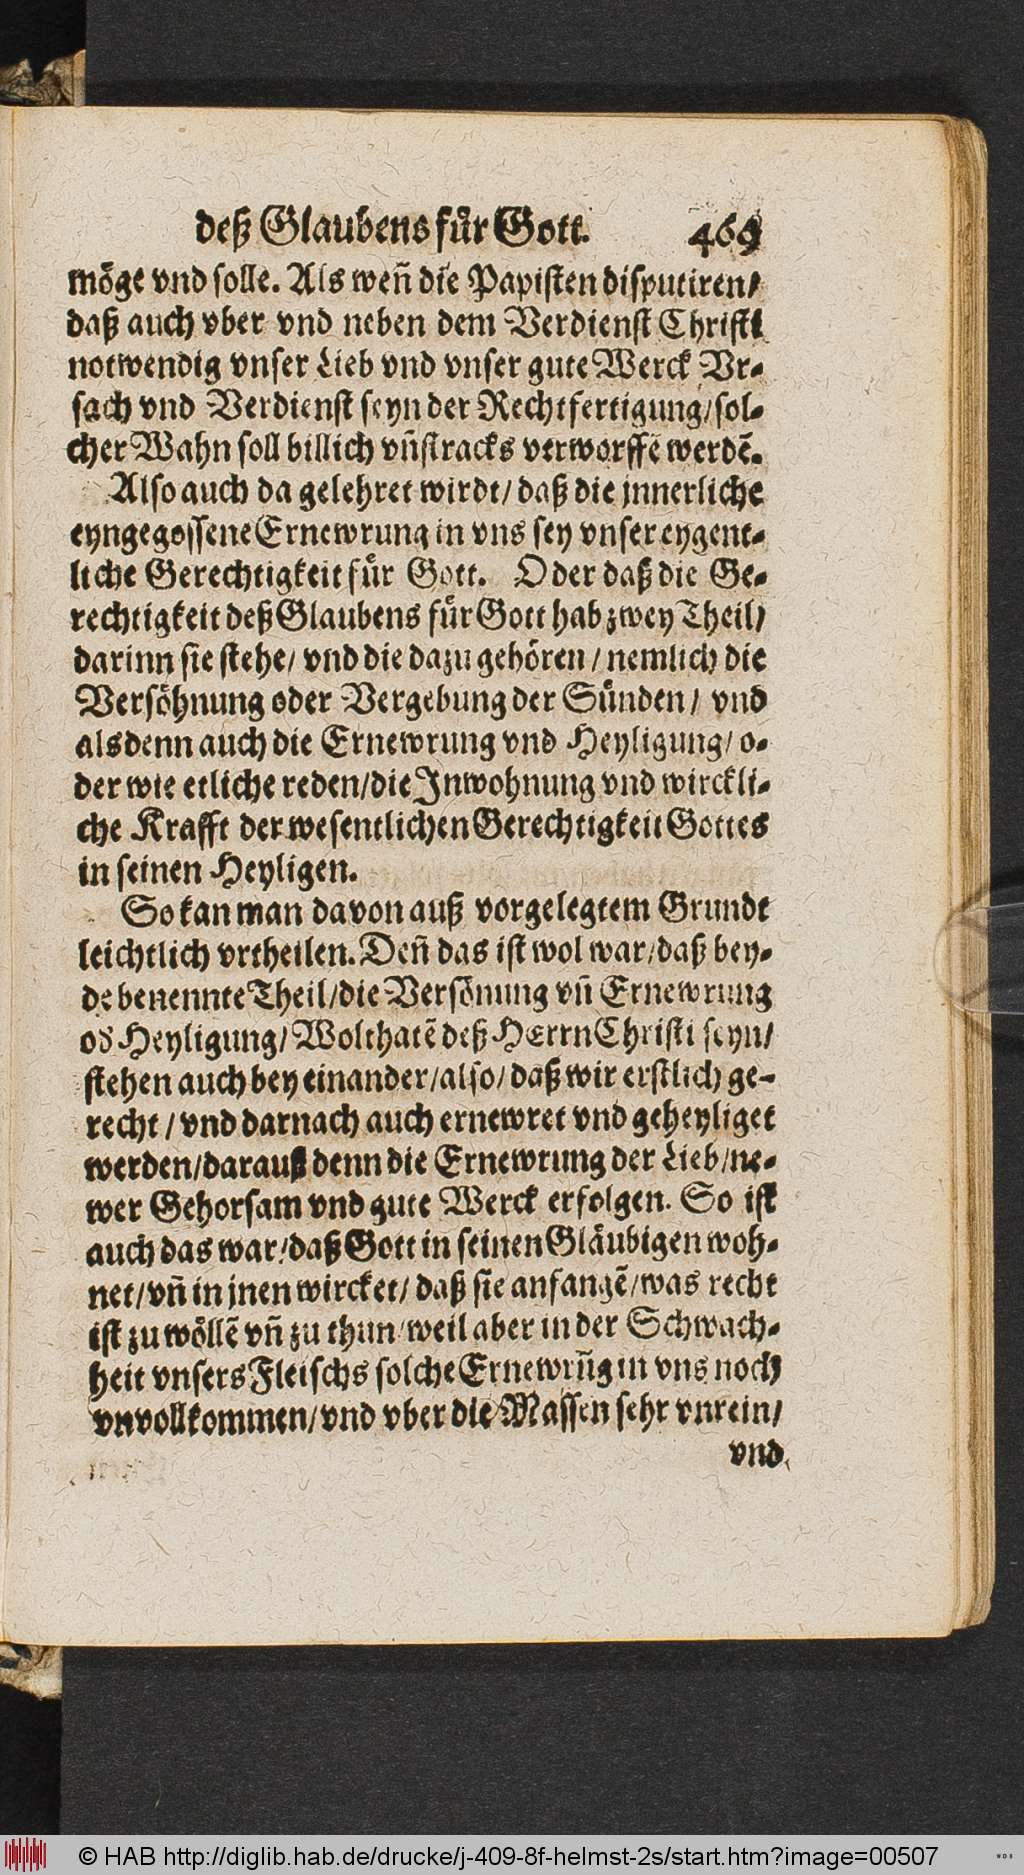 deß Glaubens für Gott. 469
möge vnd solle. Als weñ die Papisten disputiren/
daß auch vber vnd neben dem Verdienst Christi
notwendig vnser Lieb vnd vnser gute Werck Vr-
sach vnd Verdienst seyn der Rechtfertigung/sol-
cher Wahn soll billich vñ stracks verworffẽ werdẽ.
Also auch da gelehret wirdt/ daß die jnnerliche
eyngegossene Ernewrung in vns sey vnser eygent-
liche Gerechtigkeit für Gott. Oder daß die Ge-
rechtigkeit deß Glaubens für Gott hab zwey Theil/
darinn sie stehe/ vnd die dazu gehören/ nemlich die
Versöhnung oder Vergebung der Sünden/ vnd
als denn auch die Ernewrung vnd Heyligung/ o-
der wie etliche reden/die Inwohnung vnd wirckli-
che Krafft der wesentlichen Gerechtigkeit Gottes
in seinen Heyligen.
So kan man davon auß vorgelegtem Grundt
leichtlich vrtheilen. Deñ das ist wol war/daß bey-
de benennte Theil/die Versönung vñ Ernewrung
od Heyligung/ Wolthatẽ deß HErrn Christi seyn/
stehen auch bey einander/also/ daß wir erstlich ge-
recht / vnd darnach auch ernewret vnd geheyliget
werden/darauß denn die Ernewrung der Lieb/ne-
wer Gehorsam vnd gute Werck erfolgen. So ist
auch das war/daß Gott in seinen Gläubigen woh-
net/vñ in jnen wircket/ daß sie anfangẽ/was recht
ist zu wöllẽ vñ zu thun/weil aber in der Schwach-
heit vnsers Fleischs solche Ernewrũg in vns noch
vnvollkommen/vnd vber die Massen sehr vnrein/
vnd
© HAB http://diglib.hab.de/drucke/j-409-8f-helmst-2s/start.htm?image=00507